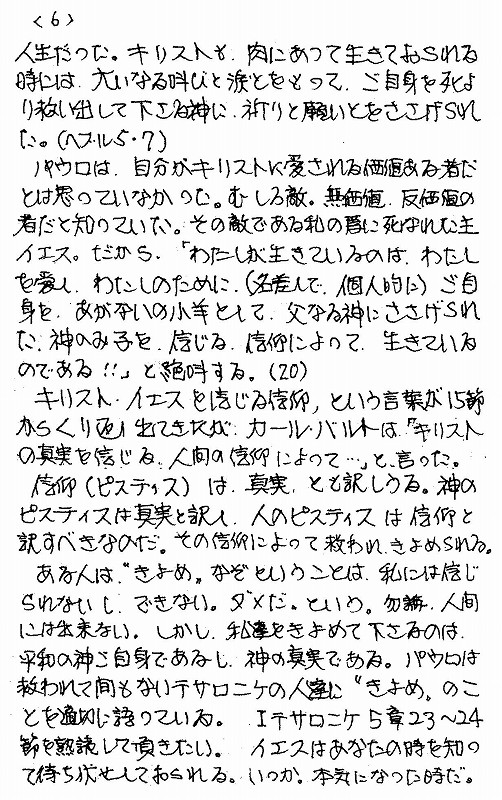 <6>
人生だった。キリストも、肉にあって生きておられる
時には、大いなる叫びと涙とをもって、ご自身を死よ
り救い出して下さる神に、祈りと願いとをささげられ
た。(ヘブル5・7)
パウロは、自分がキリストに愛される価値ある者だ
とは思っていなかった。むしろ敵。無価値、反価値の
者だと知っていた。その敵である私の為に死なれた主
イエス。だから、「わたしが生きているのは、わたし
を愛し、わたしのために、(名差しで、個人的に)ご自
身を、あがないの小羊として、父なる神にささげられ
た、神のみ子を、信じる、信仰によって、生きている
のである!!」と絶叫する。(20)
キリスト・イエスを信じる信仰、という言葉が15節
からくり返し出てきたが、カール・バルトは、「キリスト
の真実を信じる、人間の信仰によって…」と言った。
信仰(ピスティス)は、真実、とも訳しうる。神の
ピスティスは真実と訳し、人のピスティスは信仰と
訳すべきなのだ。その信仰によって救われ、きよめられる。
ある人は、“きよめ„なぞということは、私には信じ
られないし、できない。ダメだ。という。勿論、人間
には出来ない。しかし、私達をきよめて下さるのは、
平和の神ご自身であるし、神の真実である。パウロは
救われて間もないテサロニケの人達に“きよめ„のこ
とを適切に語っている。 Iテサロニケ5章23〜24
節を熟読して頂きたい。 イエスはあなたの時を知っ
て待ち伏せしておられる。いつか。本気になった時だ。